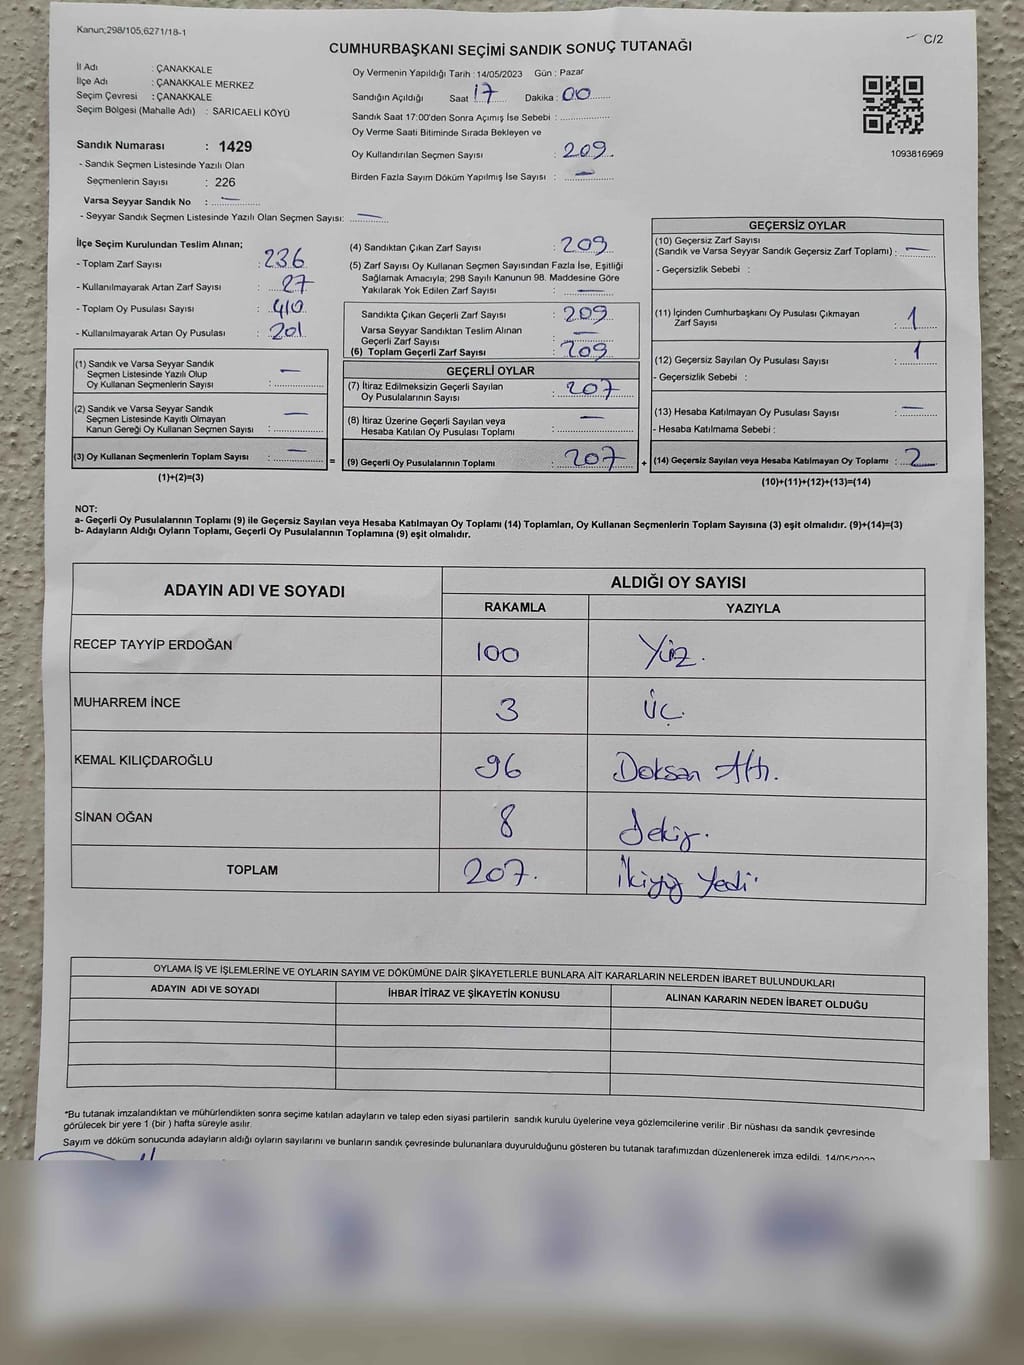 Kanun;298/105,6271/18-1
C/2
CUMHURBAŞKANI SEÇİMİ SANDIK SONUÇ TUTANAĞI
İl Adı : ÇANAKKALE
İlçe Adı : ÇANAKKALE MERKEZ
Seçim Çevresi : ÇANAKKALE
Seçim Bölgesi (Mahalle Adı) : SARICAELİ KÖYÜ
Sandık Numarası : 1429
- Sandık Seçmen Listesinde Yazılı Olan
Seçmenlerin Sayısı : 226
Varsa Seyyar Sandık No : —
- Seyyar Sandık Seçmen Listesinde Yazılı Olan Seçmen Sayısı: —
Oy Vermenin Yapıldığı Tarih : 14/05/2023 Gün : Pazar
Sandığın Açıldığı Saat 17 Dakika : 00
Sandık Saat 17:00'den Sonra Açımış İse Sebebi :
Oy Verme Saati Bitiminde Sırada Bekleyen ve
Oy Kullandırılan Seçmen Sayısı : 209.
Birden Fazla Sayım Döküm Yapılmış İse Sayısı : —
1093816969
İlçe Seçim Kurulundan Teslim Alınan;
- Toplam Zarf Sayısı : 236
- Kullanılmayarak Artan Zarf Sayısı : 27
- Toplam Oy Pusulası Sayısı : 410
- Kullanılmayarak Artan Oy Pusulası : 201
(1) Sandık ve Varsa Seyyar Sandık
Seçmen Listesinde Yazılı Olup
Oy Kullanan Seçmenlerin Sayısı : —
(2) Sandık ve Varsa Seyyar Sandık
Seçmen Listesinde Kayıtlı Olmayan
Kanun Gereği Oy Kullanan Seçmen Sayısı : —
(3) Oy Kullanan Seçmenlerin Toplam Sayısı : —
(1)+(2)=(3)
=
(4) Sandıktan Çıkan Zarf Sayısı : 209
(5) Zarf Sayısı Oy Kullanan Seçmen Sayısından Fazla İse, Eşitliği
Sağlamak Amacıyla; 298 Sayılı Kanunun 98. Maddesine Göre
Yakılarak Yok Edilen Zarf Sayısı : —
Sandıkta Çıkan Geçerli Zarf Sayısı : 209
Varsa Seyyar Sandıktan Teslim Alınan
Geçerli Zarf Sayısı : —
(6) Toplam Geçerli Zarf Sayısı : 209
GEÇERLİ OYLAR
(7) İtiraz Edilmeksizin Geçerli Sayılan
Oy Pusulalarının Sayısı : 207
(8) İtiraz Üzerine Geçerli Sayılan veya
Hesaba Katılan Oy Pusulası Toplamı : —
(9) Geçerli Oy Pusulalarının Toplamı : 207
+
GEÇERSİZ OYLAR
(10) Geçersiz Zarf Sayısı
(Sandık ve Varsa Seyyar Sandık Geçersiz Zarf Toplamı) : —
- Geçersizlik Sebebi :
(11) İçinden Cumhurbaşkanı Oy Pusulası Çıkmayan
Zarf Sayısı : 1
(12) Geçersiz Sayılan Oy Pusulası Sayısı : 1
- Geçersizlik Sebebi :
(13) Hesaba Katılmayan Oy Pusulası Sayısı : —
- Hesaba Katılmama Sebebi :
(14) Geçersiz Sayılan veya Hesaba Katılmayan Oy Toplamı : 2
(10)+(11)+(12)+(13)=(14)
NOT:
a- Geçerli Oy Pusulalarının Toplamı (9) ile Geçersiz Sayılan veya Hesaba Katılmayan Oy Toplamı (14) Toplamları, Oy Kullanan Seçmenlerin Toplam Sayısına (3) eşit olmalıdır. (9)+(14)=(3)
b- Adayların Aldığı Oyların Toplamı, Geçerli Oy Pusulalarının Toplamına (9) eşit olmalıdır.
ADAYIN ADI VE SOYADI ALDIĞI OY SAYISI
RAKAMLA YAZIYLA
RECEP TAYYİP ERDOĞAN 100 Yüz.
MUHARREM İNCE 3 üç.
KEMAL KILIÇDAROĞLU 96 Doksan Altı.
SİNAN OĞAN 8 Sekiz.
TOPLAM 207. İkiyüz Yedi.
OYLAMA İŞ VE İŞLEMLERİNE VE OYLARIN SAYIM VE DÖKÜMÜNE DAİR ŞİKAYETLERLE BUNLARA AİT KARARLARIN NELERDEN İBARET BULUNDUKLARI
ADAYIN ADI VE SOYADI İHBAR İTİRAZ VE ŞİKAYETİN KONUSU ALINAN KARARIN NEDEN İBARET OLDUĞU
*Bu tutanak imzalandıktan ve mühürlendikten sonra seçime katılan adayların ve talep eden siyasi partilerin sandık kurulu üyelerine veya gözlemcilerine verilir .Bir nüshası da sandık çevresinde
görülecek bir yere 1 (bir ) hafta süreyle asılır.
Sayım ve döküm sonucunda adayların aldığı oyların sayılarını ve bunların sandık çevresinde bulunanlara duyurulduğunu gösteren bu tutanak tarafımızdan düzenlenerek imza edildi.